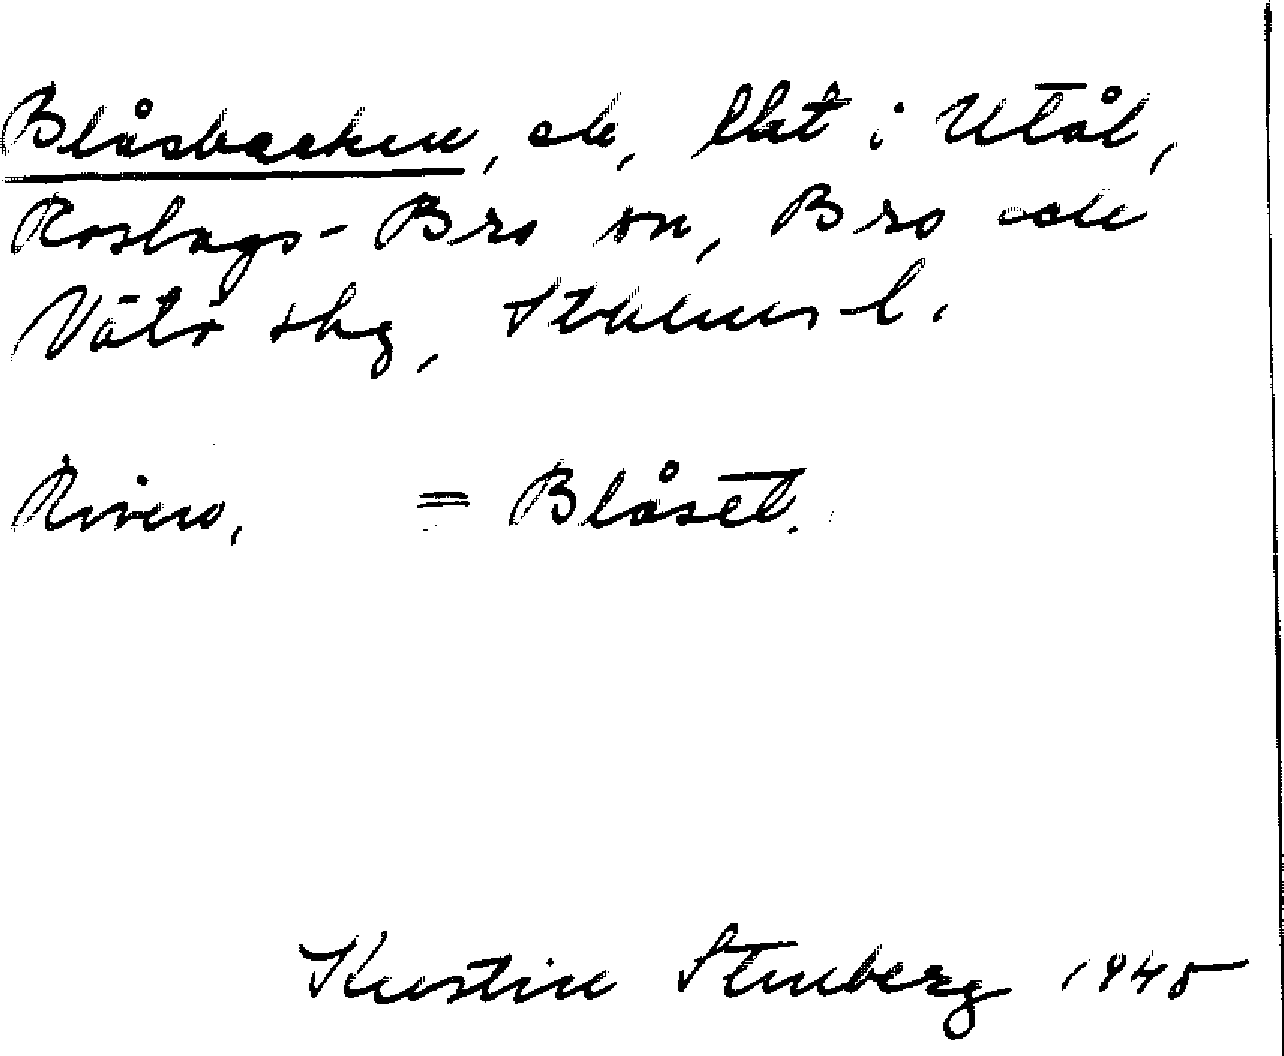 Blåsbacken, ck, lht i Utål,
Roslags-Bro sn, Bro och
Vätö skg, Sthlms l.
= Blåset.
Kerstin Stenberg 1945